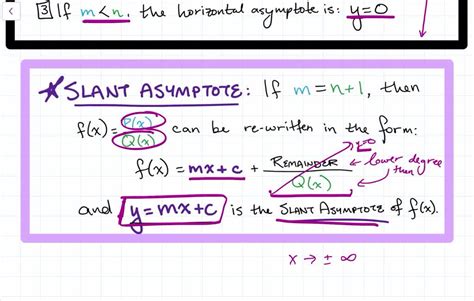 3 If m<n, the horizontal asymptote is: y=0
☆ SLANT ASYMPTOTE: If m=n+1, then
f(x)= P(x)/Q(x) can be re-written in the form:
→0
f(x) = mx+c + REMAINDER/Q(x) ← lower degree then
and y=mx+c is the SLANT ASYMPTOTE of f(x).
x → ± ∞